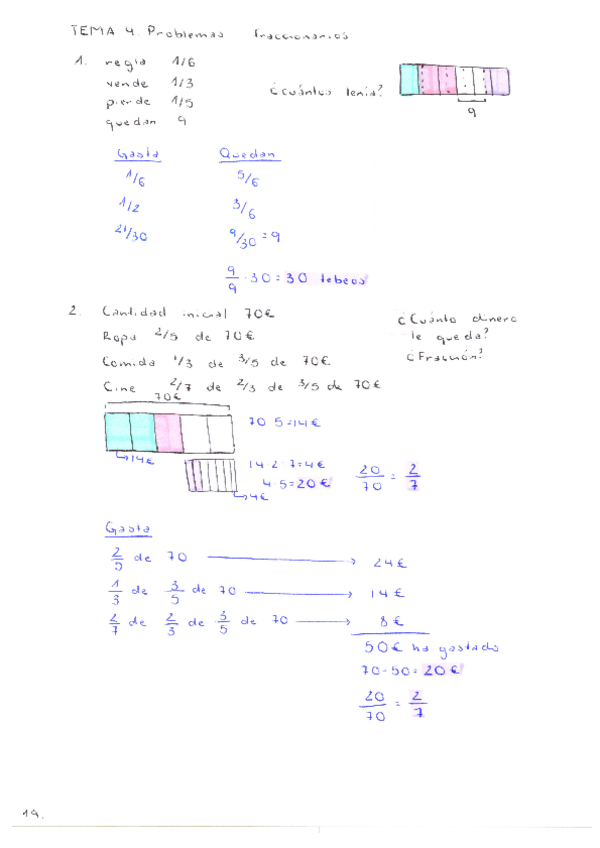 TEMA 4. Problemas fraccionarios
1. regla 1/6
vende 1/3
pierde 1/5
quedan 9
¿Cuántos tenía?
9
Gasta Quedan
1/6 5/6
1/2 3/6
21/30 9/30 = 9
9/9 · 30 = 30 tebeos
2. Cantidad inicial 70€
Ropa 2/5 de 70€
Comida 1/3 de 3/5 de 70€
Cine 2/7 de 2/3 de 3/5 de 70€
¿Cuánto dinero
le queda?
¿Fracción?
70€
70 5=14€
14€
14·2·7=4€
4·5=20€
4€
20/70 = 2/7
Gasta
2/5 de 70 → 24€
1/3 de 3/5 de 70 → 14€
2/7 de 2/3 de 3/5 de 70 → 8€
50€ ha gastado
70-50= 20€
20/70 = 2/7
19.